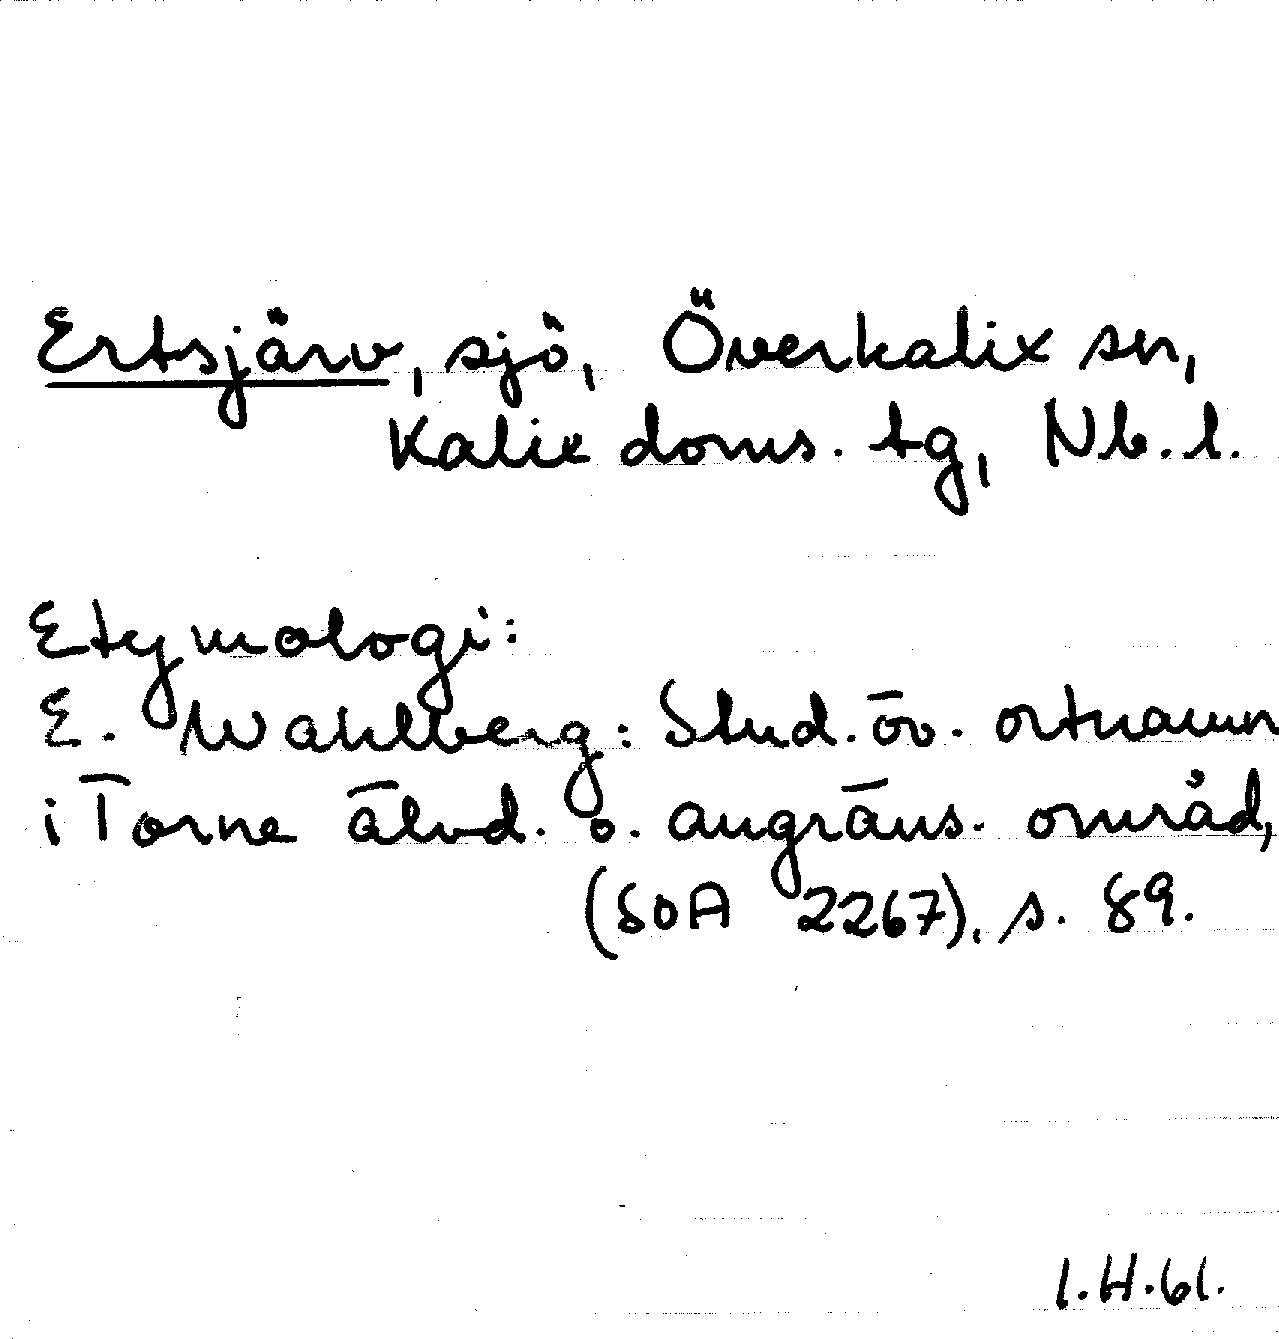 Ertsjärv, sjö, Överkalix sn,
Kalix doms. tg, Nb. l.
Etymologi:
E. Wahlberg: Stud. öv. ortnamn
i Torne älvd. o. angräns. områd,
(SOA 2267), s. 89.
I.H.61.